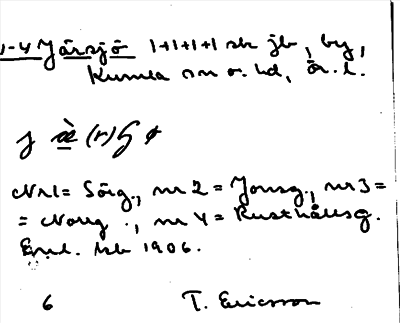 1-4 Järsjö 1+1+1+1 sk jb, by,
Kumla sn o. hd, Ör. l.
j æ̀ (r) G ¢
Nr 1 = Sörg., nr 2 = Jonsg., nr 3 =
= Norrg., nr 4 = Rusthållsg.
Enl. sb 1906.
6 T. Ericsson